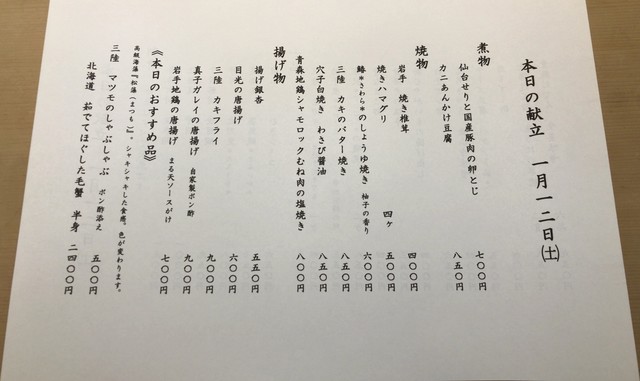 本日の献立　一月一二日(土)
煮物
仙台せりと国産豚肉の卵とじ　七〇〇円
カニあんかけ豆腐　八五〇円
焼物
岩手　焼き椎茸　四〇〇円
焼きハマグリ　四ヶ　五〇〇円
鰆*さわら*のしょうゆ焼き　柚子の香り　六〇〇円
三陸　カキのバター焼き　八五〇円
穴子白焼き　わさび醤油　八五〇円
青森地鶏シャモロックむね肉の塩焼き　八〇〇円
揚げ物
揚げ銀杏　五五〇円
目光の唐揚げ　六〇〇円
三陸　カキフライ　九〇〇円
真子ガレイの唐揚げ　自家製ポン酢　九〇〇円
岩手地鶏の唐揚げ　まる天ソースがけ　七〇〇円
《本日のおすすめ品》
高級海藻『松藻(まつも)』。シャキシャキした食感。色が変わります。
三陸　マツモのしゃぶしゃぶ　ポン酢添え　五〇〇円
北海道　茹でてほぐした毛蟹　半身　二四〇〇円